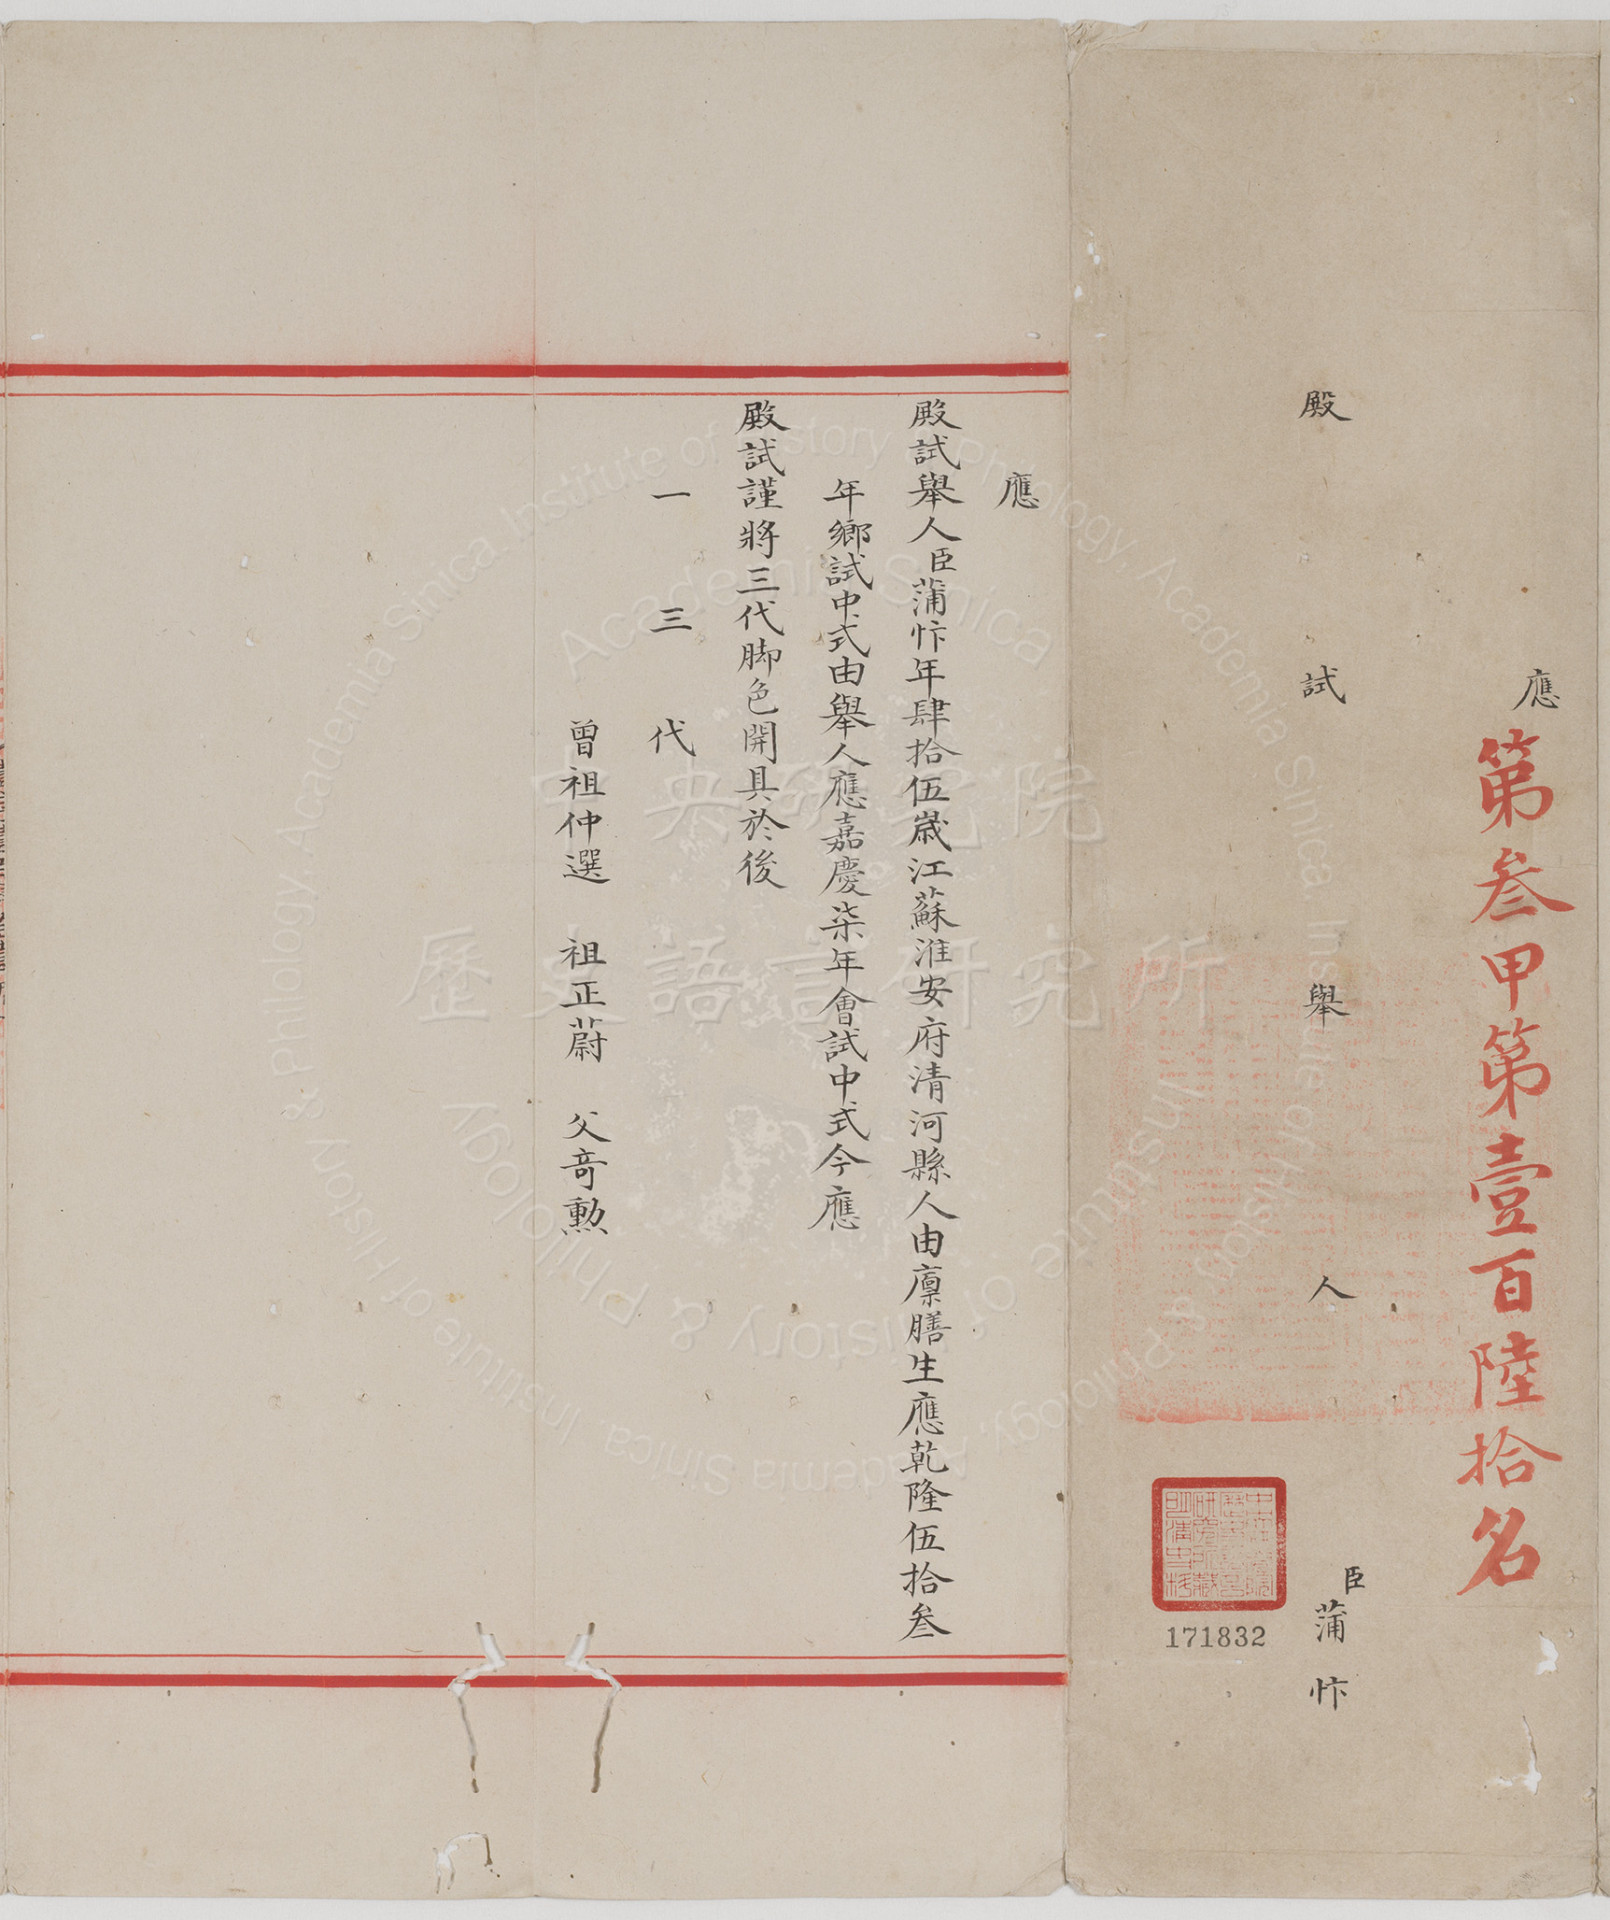 應
第叁甲第壹百陸拾名
殿試舉人
臣蒲忭
171832
應
殿試舉人臣蒲忭年肆拾伍歲江蘇淮安府清河縣人由廩膳生應乾隆伍拾叁
年鄉試中式由舉人應嘉慶柒年會試中式今應
殿試謹將三代脚色開具於後
一三代
曾祖仲選 祖正蔚 父奇勲
中央研究院
歷史語言研究所
Academia Sinica
Institute of History & Philology
Institute of History & Philology, Academia Sinica.